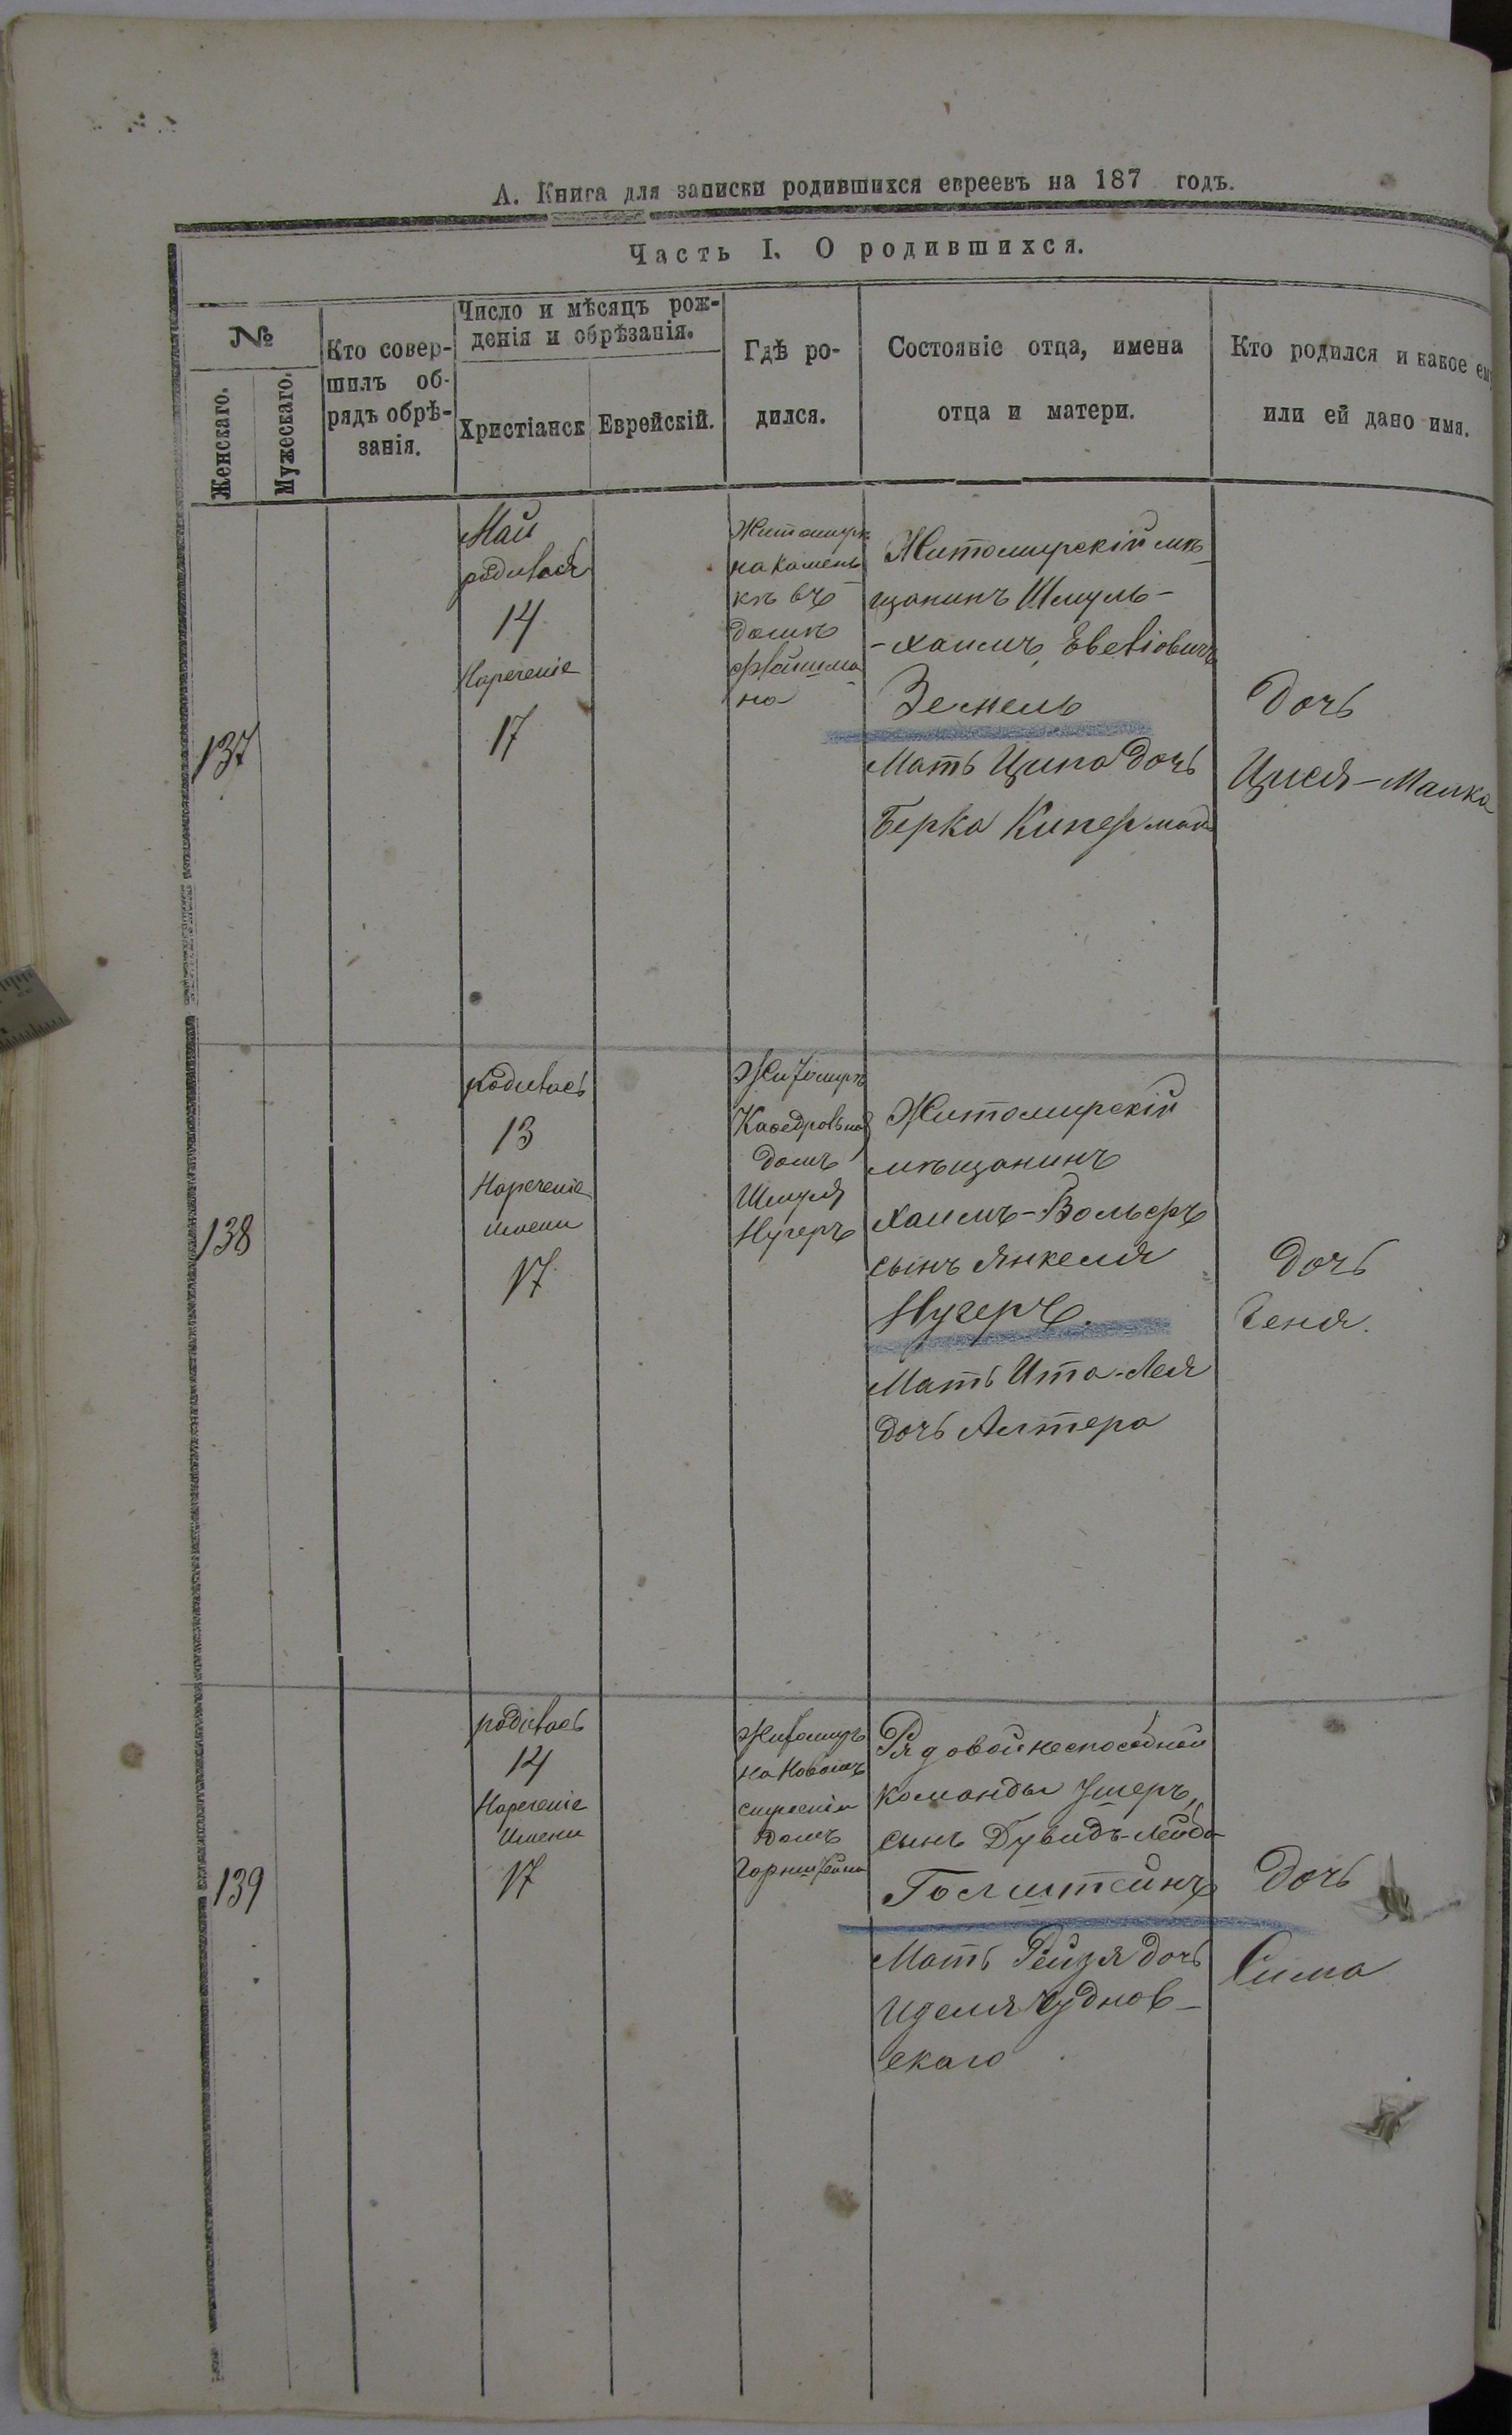 А. Книга для записки родившихся евреевъ на 187 годъ.
Часть I. О родившихся.
№
Женскаго.
Мужескаго.
Кто совер-
шилъ об-
рядъ обрѣ-
занія.
Число и мѣсяцъ рож-
денія и обрѣзанія.
Христіанск
Еврейскій.
Гдѣ ро-
дился.
Состояніе отца, имена
отца и матери.
Кто родился и какое ем
или ей дано имя.
137
Май
родилась
14
Нареченіе
17
Житомиръ
на Камен
кѣ въ
домѣ
на
Житомирскій мѣ
щанинъ Шмуль-
-Хаимъ
Земель
Мать Ципа дочь
Берка Киперман
Дочь
Цися-Малка
138
родилась
13
Нареченіе
имени
17
Житомиръ
Каѳедровьная
домъ
Шмуля
Нугеръ
Житомирскій
мѣщанинъ
Хаимъ-Вольфъ
сынъ Янкеля
Нугеръ.
Мать Ита-Лея
дочь Алтера
дочь
Геня.
139
родилась
14
Нареченіе
Имени
17
Житомиръ
на Новомъ
строеніи
домъ
Горнштейна
Рядовой неспособной
команды Ушеръ,
сынъ Дувидъ-Лейба
Голштейнъ
Мать Рейзя дочь
Иделя Чуднов-
скаго
Дочь
Сима